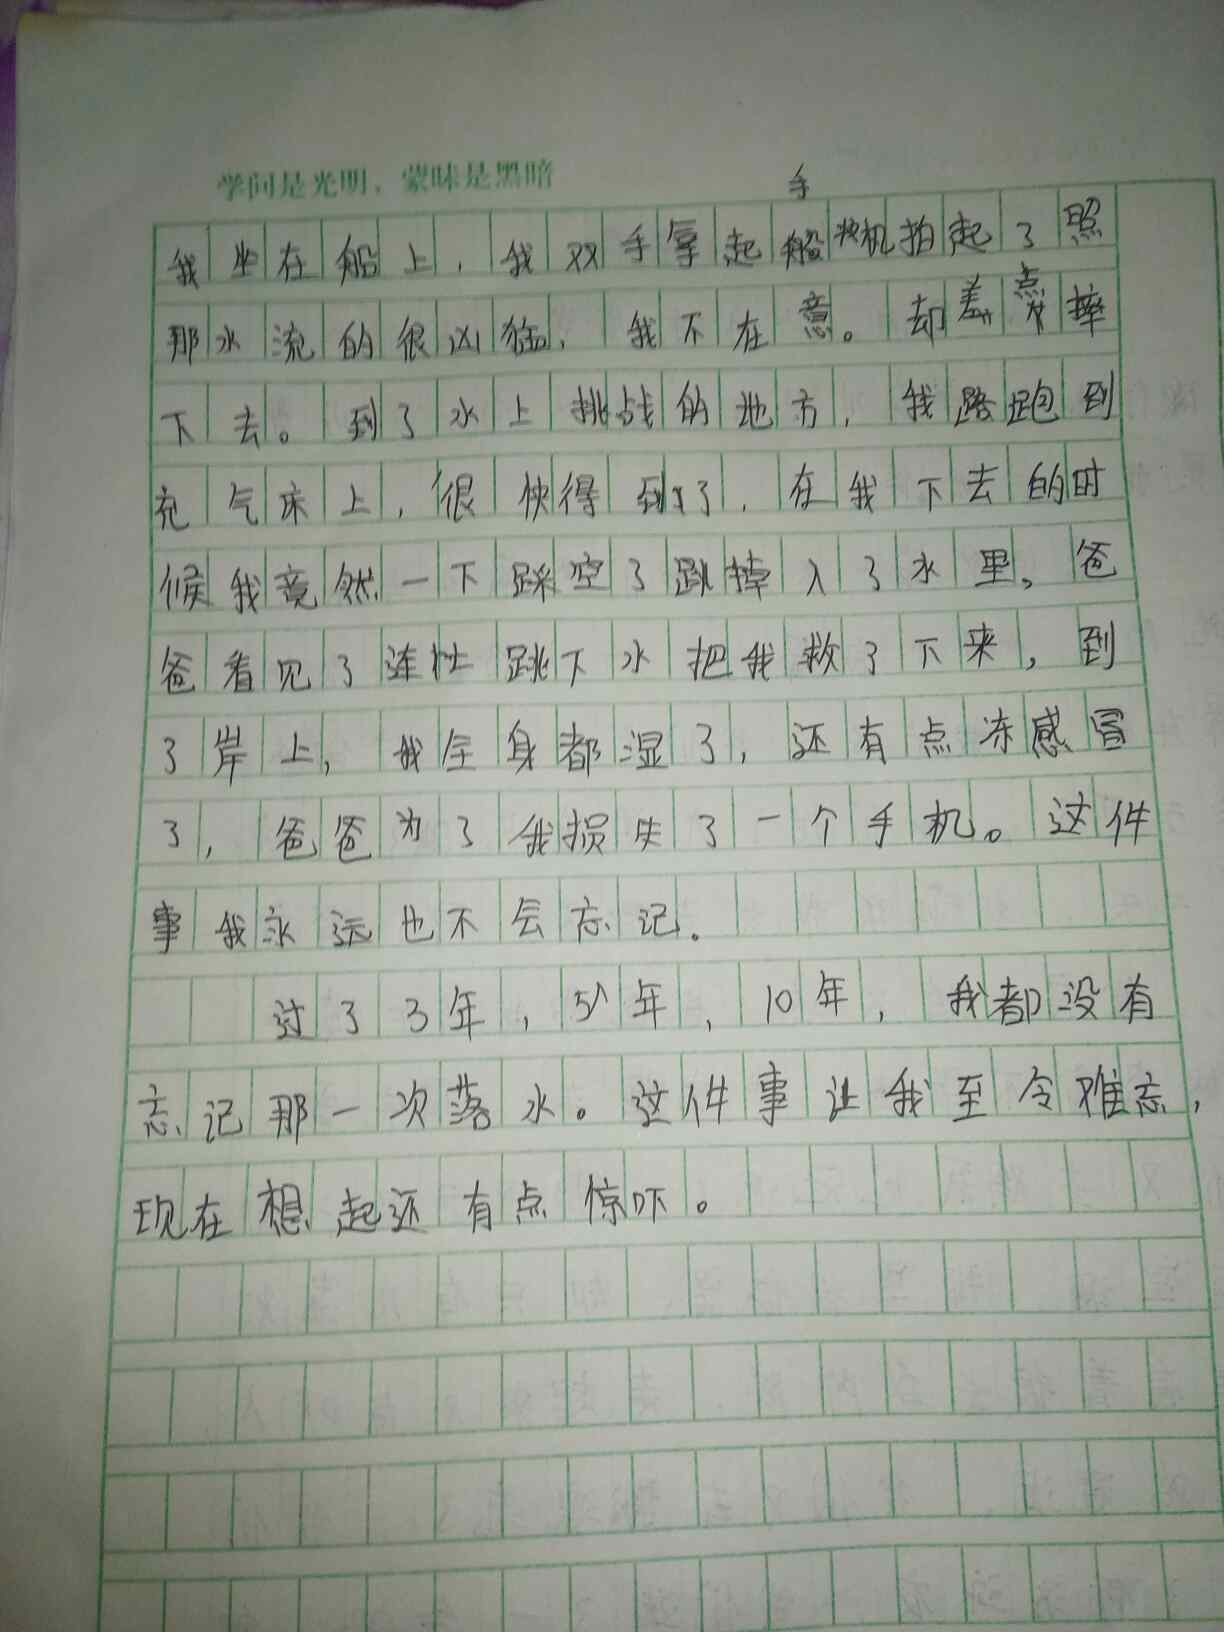 学问是光明，蒙昧是黑暗
手
我坐在船上，我双手拿起船机拍起了照
那水流的很凶猛，我不在意。却差点摔
下去。到了水上挑战的地方，我踏跑到
充气床上，很快得到了，在我下去的时
候我竟然一下踩空了跳掉入了水里，爸
爸看见了连忙跳下水把我救了下来，到
了岸上，我全身都湿了，还有点冻感冒
了，爸爸为了我损失了一个手机。这件
事我永远也不会忘记。
过了3年，5年，10年，我都没有
忘记那一次落水。这件事让我至令难忘，
现在想起还有点惊吓。